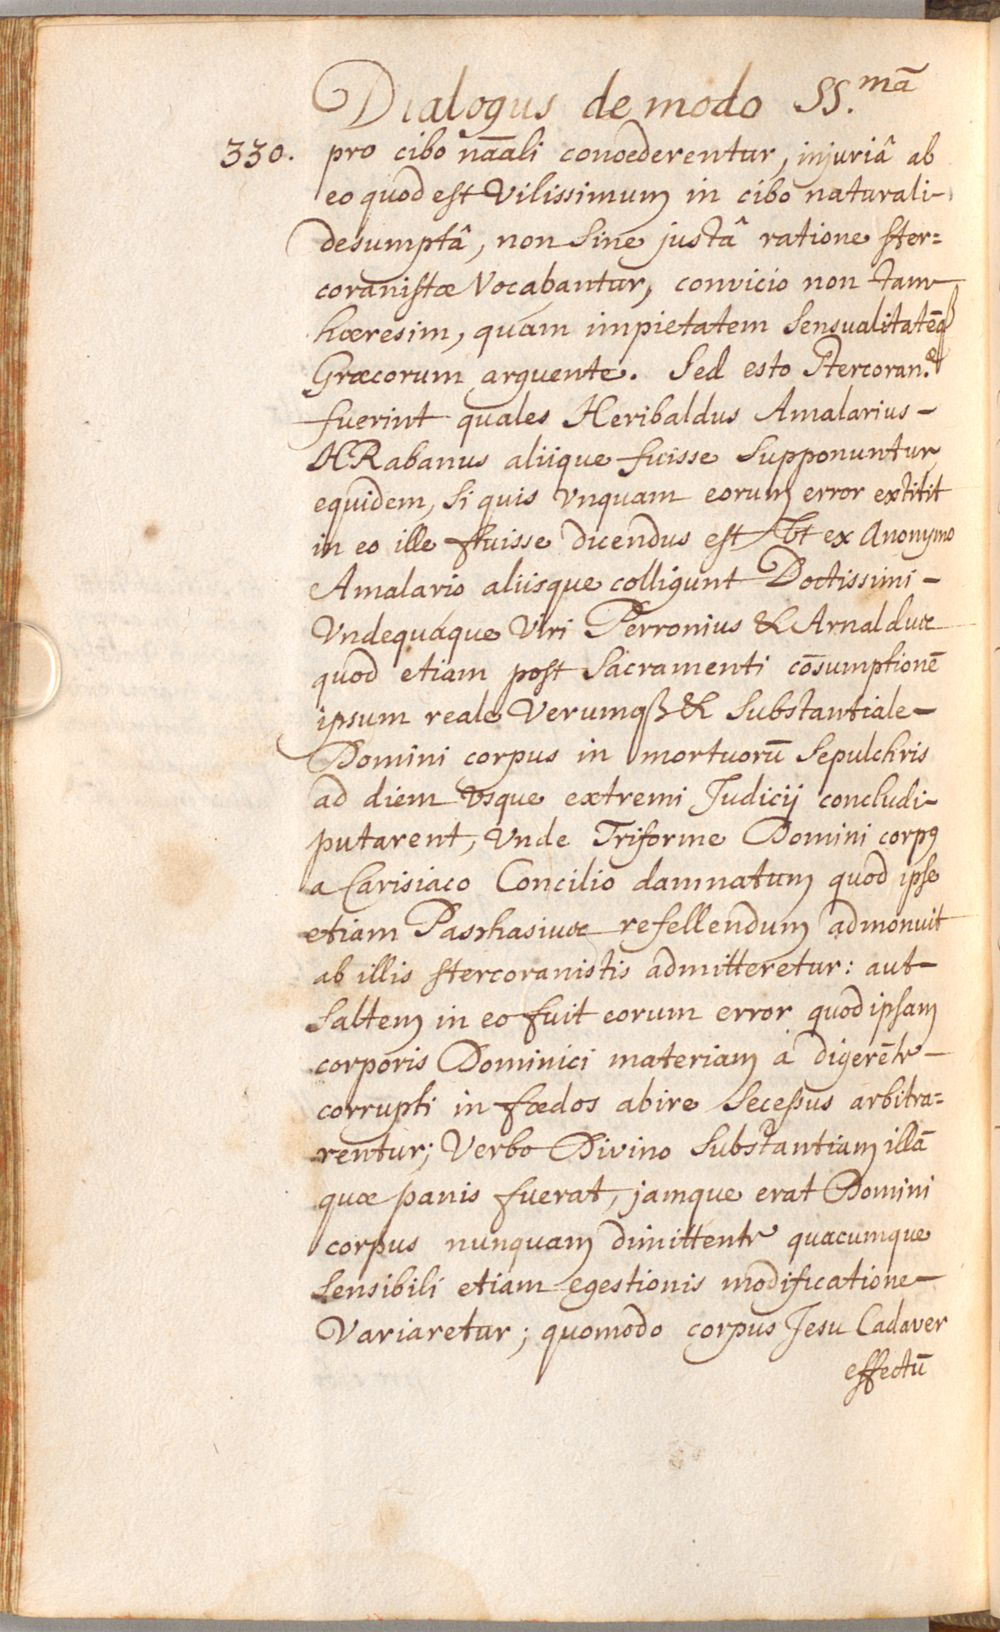 Dialogus de modo SS.mā
330. pro cibo nāali conoederentur, injuriâ ab
eo quod est Vilissimum in cibo naturali-
desumptâ, non sine justâ ratione ster=
coranistæ Vocabantur, convicio non tam
hæresim, quàm impietatem sensualitatēq
Græcorum arguente. Sed esto Stercoran.æ
fuerint quales Heribaldus Amalarius -
HRabanus aliique fuisse supponuntur
equidem, si quis vnquam eorum error extitit
in eo ille fuisse dicendus est Vt ex Anonymo
Amalario aliisque colligunt Doctissimi -
Vndequáque Viri Perronius & Arnaldus
quod etiam post sacramenti cōsumptionē
ipsum reale Verumqß & substantiale -
Domini corpus in mortuorū sepulchris
ad diem vsque extremi Judicij concludi-
putarent, Vnde Triforme Domini corpꝰ
a Carisiaco Concilio damnatum quod ipse
etiam Paschasius refellendum admonuit
ab illis stercoranistis admitteretur: aut
saltem in eo fuit eorum error quod ipsam
corporis Dominici materiam á digerētr -
corrupti in fœdos abire secessus arbitra=
rentur; Verbo Divino substantiam illā
quæ panis fuerat, jamque erat Domini
corpus nunquam dimittentr quacumque
sensibili etiam egestionis modificatione -
Variaretur; quomodo corpus Jesu Cadaver
effectū